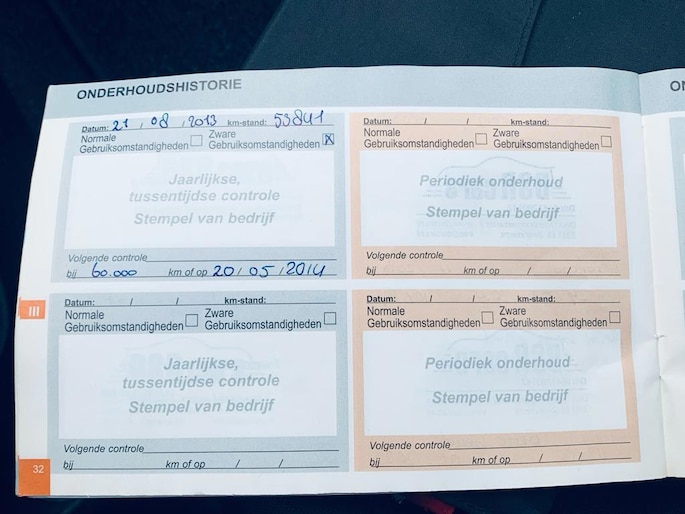 ONDERHOUDSHISTORIE
Datum: 21 / 08 / 2013 km-stand: 53841
Normale Gebruiksomstandigheden ☐ Zware Gebruiksomstandigheden ☒
Jaarlijkse,
tussentijdse controle
Stempel van bedrijf
Volgende controle
bij 60.000 km of op 20 / 05 / 2014
Datum: / / km-stand:
Normale Gebruiksomstandigheden ☐ Zware Gebruiksomstandigheden ☐
Periodiek onderhoud
Stempel van bedrijf
Volgende controle
bij km of op / /
III
Datum: / / km-stand:
Normale Gebruiksomstandigheden ☐ Zware Gebruiksomstandigheden ☐
Jaarlijkse,
tussentijdse controle
Stempel van bedrijf
Volgende controle
bij km of op / /
Datum: / / km-stand:
Normale Gebruiksomstandigheden ☐ Zware Gebruiksomstandigheden ☐
Periodiek onderhoud
Stempel van bedrijf
Volgende controle
bij km of op / /
32